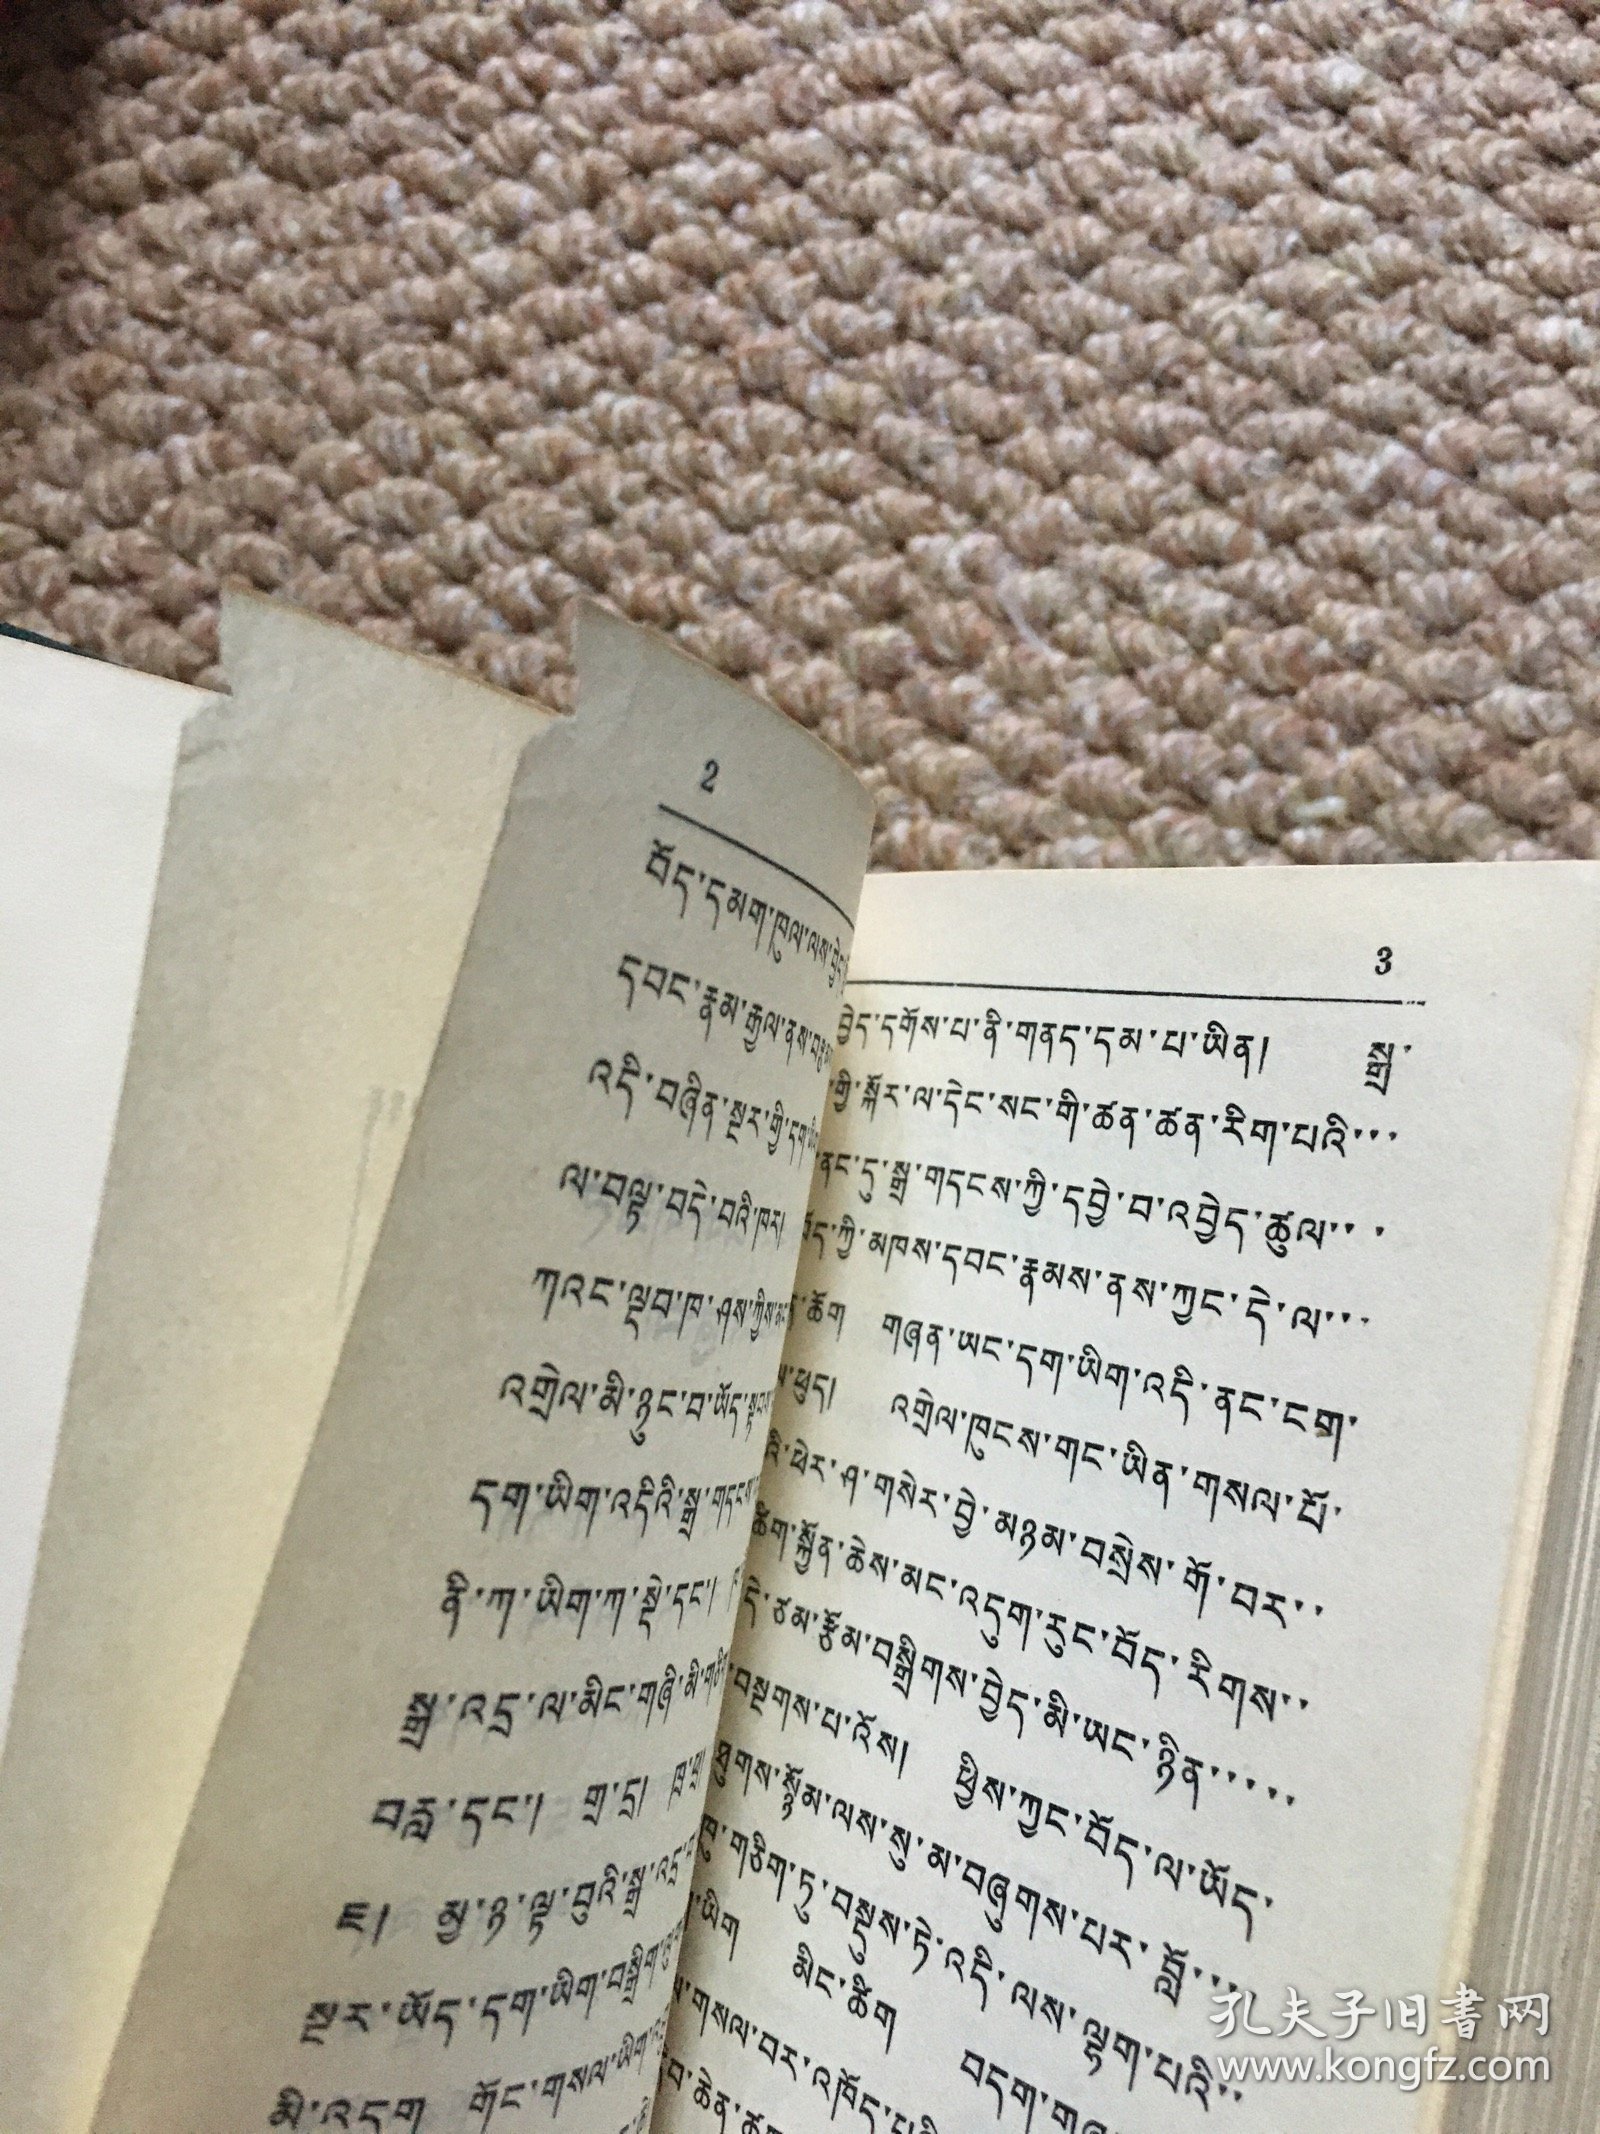 2
བོད་དམག་ཁུལ་ལས་
དབང་རྣམ་རྒྱལ་ནས་
འདི་བཞིན་སྔར་གྱི་དག་
ལ་བལྟ་བདེ་བའི་ཁར།
ཀའང་ལྡབ་ཁ་ཤས་ཀྱིས་
འགྲེལ་མི་ཉུང་བ་ཡོད་
དག་ཡིག་འདིའི་སྒྲ་གདངས་
ནི་ཀ་ཡིག་ཀ་སྡེ་དང་།
སྒྲ་འདྲ་ལ་མིང་གཞི་མི་
བརླ་དང་། གྲ་དྲ།
ཇ། མྱ་ཉ་ལྟ་བུའི་སྒྲ་འདྲ་
སྔར་ཡོད་དག་ཡིག་བསྒྲིག་
མི་འདག གོང་གསལ་ཡིག་
3
བྱེད་དགོས་པ་ནི་གནད་དམ་པ་ཡིན། སྒྲ་
གྱི་སྐོར་ལ་དེང་སང་གི་ཚན་ཚན་རིག་པའི་···
ནང་དུ་སྒྲ་གདངས་ཀྱི་དབྱེ་བ་འབྱེད་ཚུལ་···
བོད་ཀྱི་མཁས་དབང་རྣམས་ནས་ཀྱང་དེ་ལ་···
ཆོག གཞན་ཡང་དག་ཡིག་འདི་ནང་ངག་
ཕུད། འགྲེལ་ཁུངས་གང་ཡིན་གསལ་པོ་
འི་ཕེར་ཤ་གསེར་བྱེ་མཉམ་བསྲེས་གོ་བར་··
ཚིག་སྐྱོན་ཆེས་མང་འདུག་རུང་བོད་རིགས་··
དེ་ཙམ་རྩོམ་བསྒྲིགས་བྱེད་མི་ཡང་ཉིན་····
བསྔགས་པ་འོས། ཕྱིས་ཀྱང་བོད་ལ་ཡོད་
ཐུགས་སྙོམ་ལས་སུ་མ་བཞུགས་པར་བློ་···
ཁུ་གཅིག་ཏུ་བསྡུས་ཏེ་འདི་ལས་ལྷག་པའི་··
ཡིག མིང་ཚིག བདག་
གསལ་བར་འཁོད་པའི་
བ་ཆེན་
孔夫子旧书网
www.kongfz.com